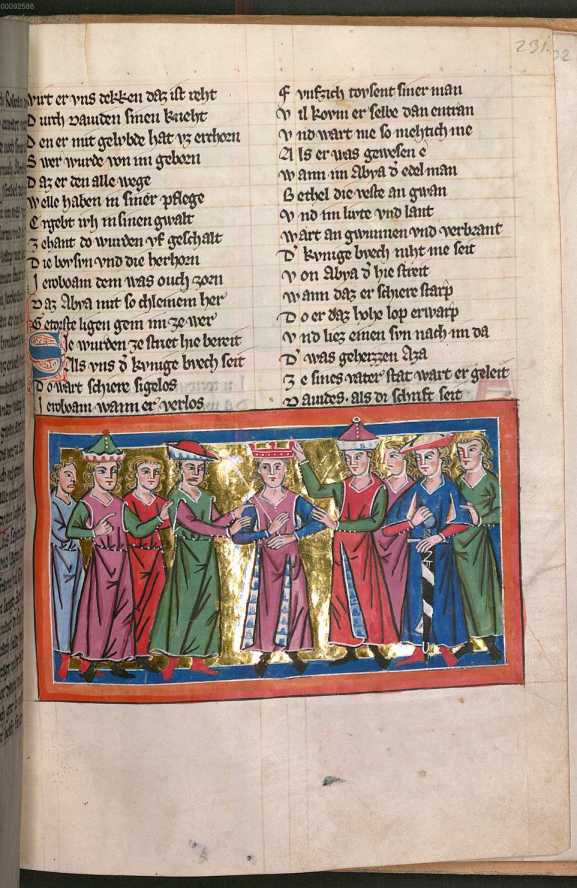 00092588
231
wirt er vns dekken daz ist reht
Durch dauiden sinen kneht
Den er mit gelvbde hat vz erchorn
Swer wurde von im geborn
Daz er den alle wege
welle haben in siner pflege
Ergebt ivh in sinen gwalt
Zehant do wurden vf geschalt
Die bovsvn vnd die herhorn
Ieroboam dem was ouch zorn
Daz Abya mit so chleinem her
Getorste ligen gein im ze wer
Sie wurden ze striet hie bereit
Als vns dˀ kvnige bvech seit
Do wart schiere sigelos
Ieroboam wann er verlos
Fvnfzich tovsent siner man
Vil kovm er selbe dan entran
Vnd wart nie so mehtich me
Als er was gewesen e
wann im Abya dˀ edel man
Bethel die veste an gwan
Vnd im livte vnd lant
wart an gwunnen vnd verbrant
Dˀ kvnige bvech niht me seit
Von Abya dˀ hie streit
wann daz er schiere starp
Do er daz hohe lop erwarp
Vnd liez einen svn nach im da
Dˀ was geheizzen Aza
Ze sines vater stat wart er geleit
Dauides. als di schrift seit